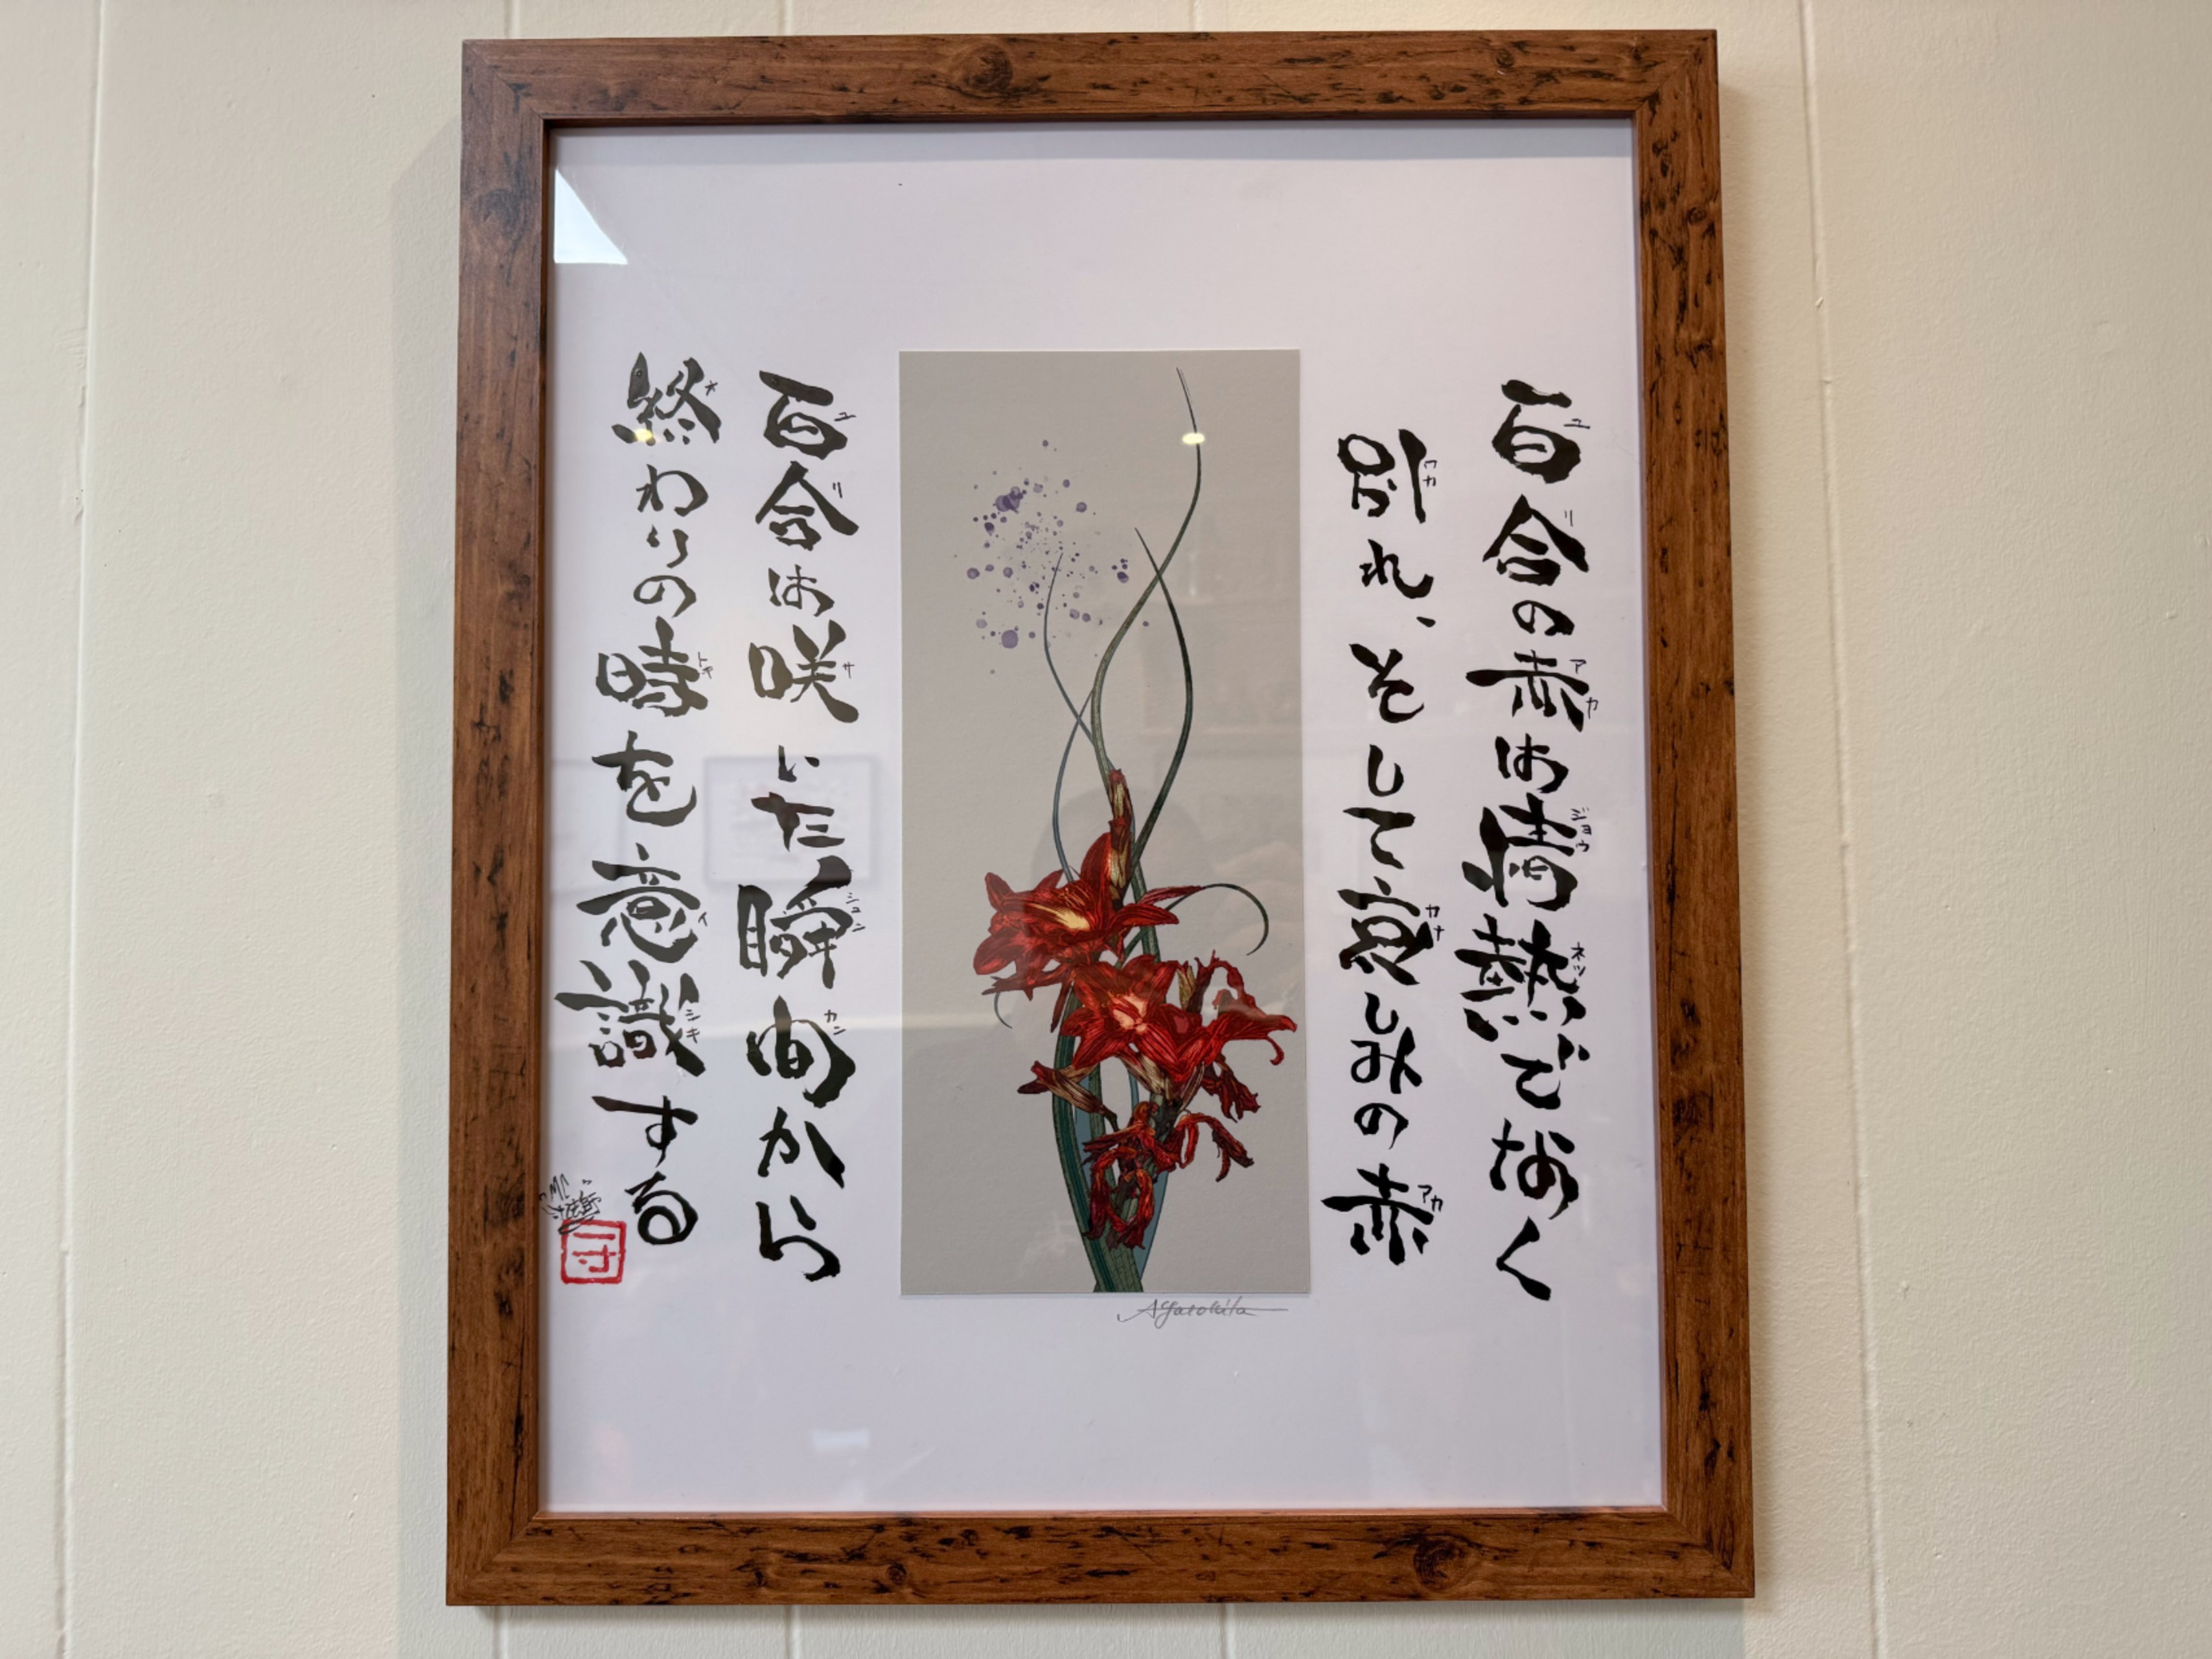 百合の赤は情熱でなく
別れ、そして哀しみの赤
百合は咲いた瞬間から
終わりの時を意識する